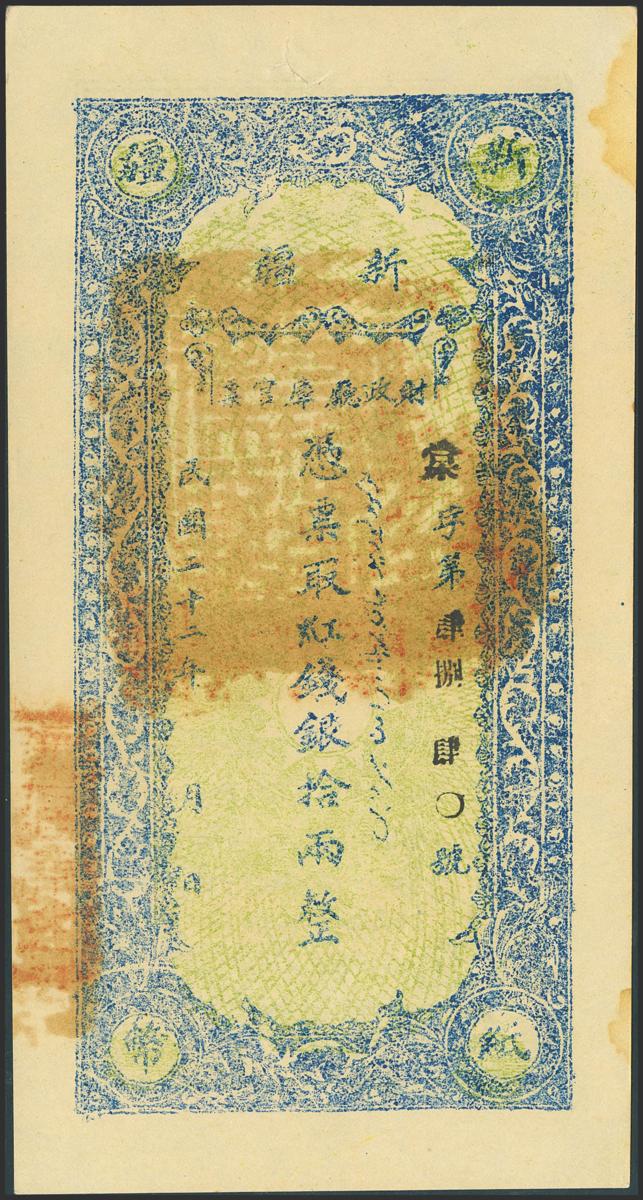 新疆
紙幣
新疆
財政廳庫官票
字第肆捌肆〇號
憑票取紅錢銀拾兩整
民國二十二年 月 日